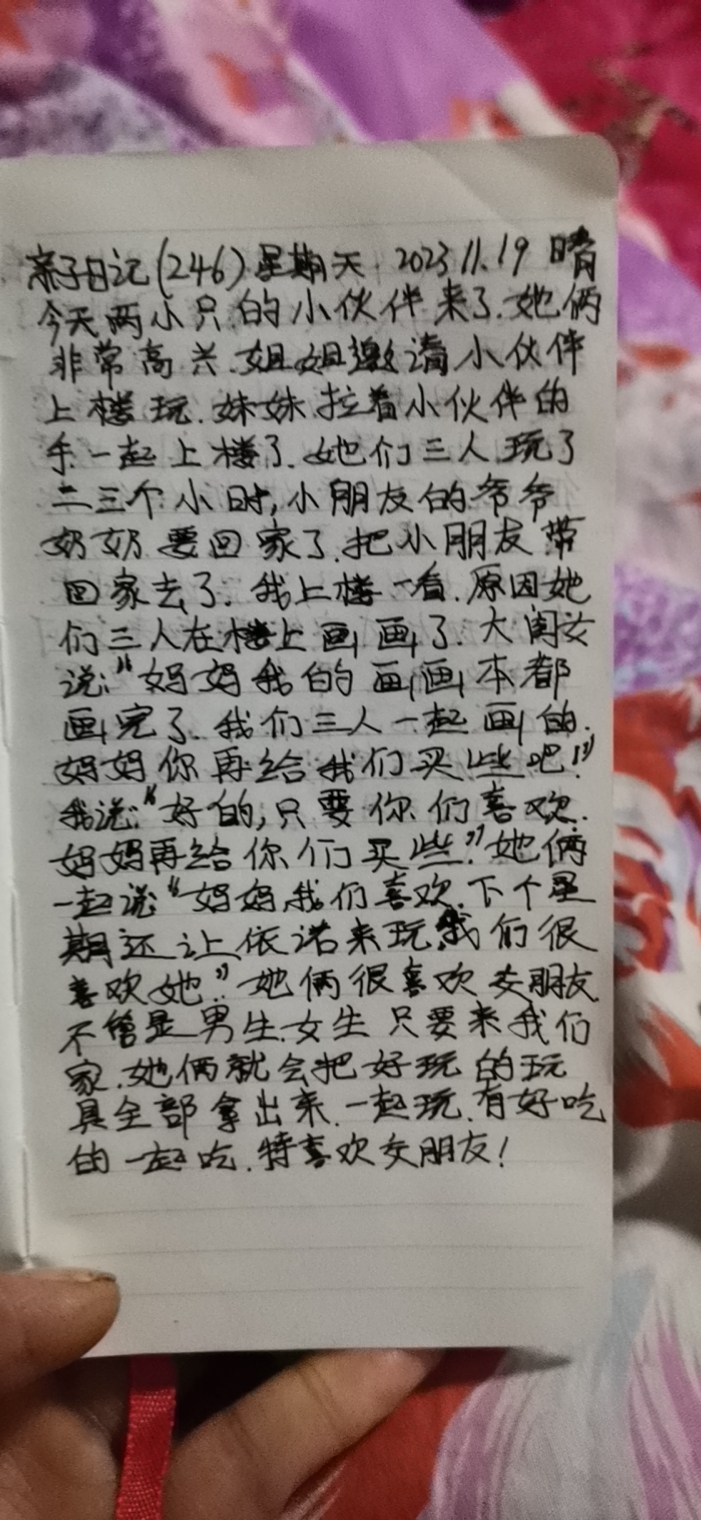 亲子日记(246)星期天 2023.11.19 晴
今天两小只的小伙伴来了.她俩
非常高兴.姐姐邀请小伙伴
上楼玩.妹妹拉着小伙伴的
手一起上楼了.她们三人玩了
二三个小时,小朋友的爷爷
奶奶要回家了.把小朋友带
回家去了.我上楼一看.原因她
们三人在楼上画画了.大闺女
说:“妈妈我的画画本都
画完了.我们三人一起画的.
妈妈你再给我们买些吧!”
我说:“好的,只要你们喜欢.
妈妈再给你们买些.”她俩
一起说“妈妈我们喜欢.下个星
期还让依诺来玩,我们很
喜欢她.”她俩很喜欢交朋友
不管是男生.女生只要来我们
家.她俩就会把好玩的玩
具全部拿出来.一起玩.有好吃
的一起吃.特喜欢交朋友!